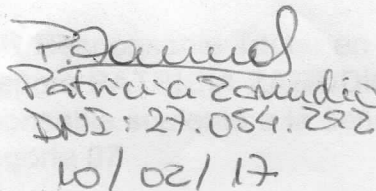 Patricia Zamudio
DNI: 27.054.292
10/02/17